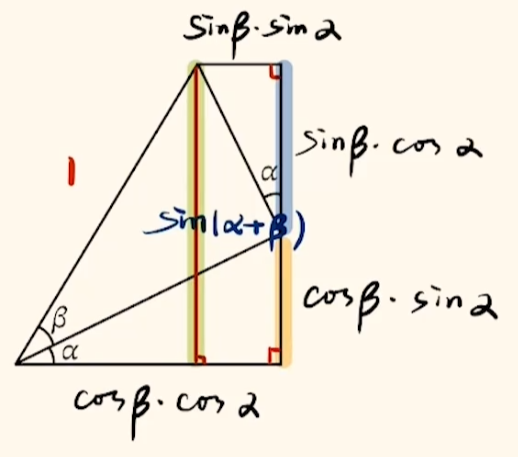 sinβ·sinα
1
α
sinβ·cosα
sin(α+β)
cosβ·sinα
β
α
cosβ·cosα